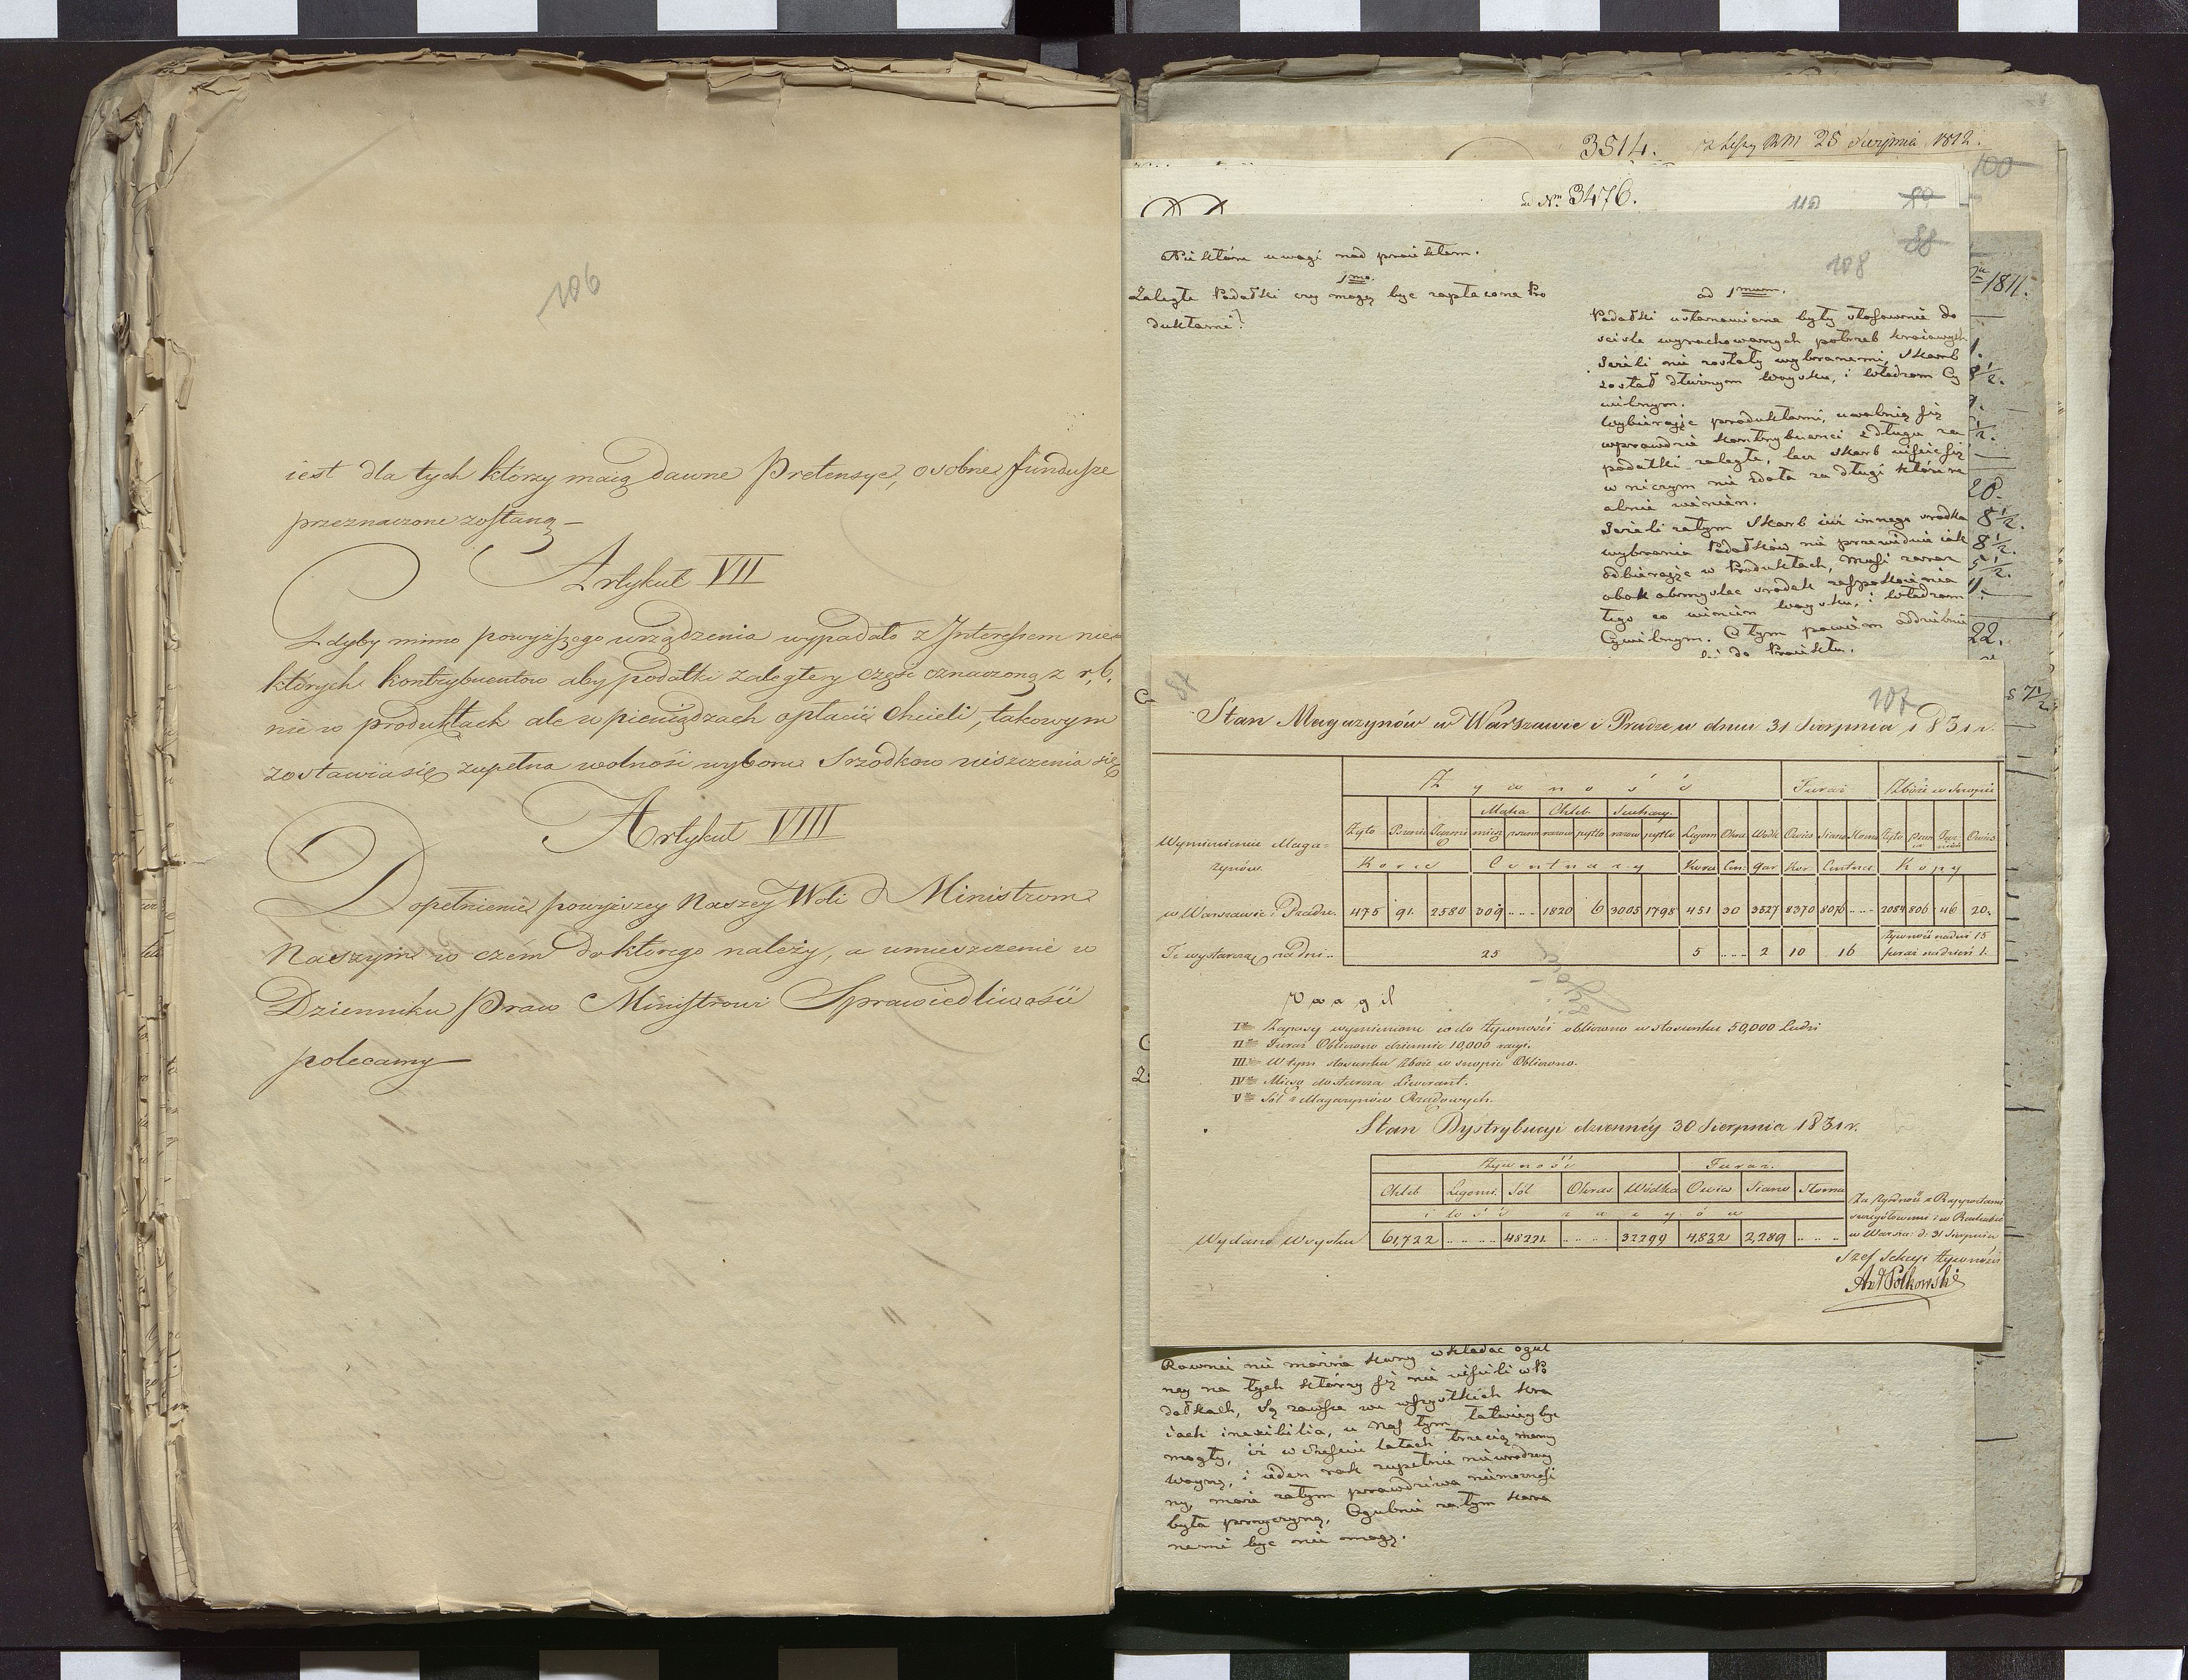 106
iest dla tych którzy maią dawne Pretensye, osobne fundusze
przeznaczone zostaną –
Artykuł VII
Gdyby mimo powyższego urządzenia wypadało z Interessem nie
których kontrybuentow aby podatki zaległe czyli część oznaczoną z r. b.
nie w produktach ale w pieniądzach opłacić chcieli, takowym
zostawia się zupełna wolność wyboru Srzodkow uiszczenia się
Artykuł VIII
Dopełnienie powyższey Naszey Woli Ministrom
Naszym w czém do którego należy, a umieszczenie w
Dzienniku Praw Ministrowi Sprawiedliwości
polecamy
3514.
25 Sierpnia 1812.
100
ad Nm 3476.
110
88
108
1811.
Niektóre uwagi nad proiektem.
1mo.
Zaległe Podatki czy mogą być zapłacone Pro
duktami?
ad 1mum.
Podatki ustanowione były stosownie do
sciśle wyrachowanych potrzeb kraiowych
Jeżeli nie zostały wybranemi, Skarb
został dłużnym woysku, i Władzom Cy
wilnym.
Wybieraiąc produktami, uwolnią się
wprawdzie kontrybuenci z długu za
podatki zaległe, lecz Skarb
w niczym nie zdoła za długi które re
alnie winien.
Jeżeli zatym Skarb innego srodka
wybrania Podatków nie przewidzie iak
odbieraiąc w Produktach, musi zaraz
obok obmyslec srodek zaspokoienia
tego co winien woysku, i Władzom
Cywilnym. O tym powiem oddzielnie
do Proiektu.
107
Stan Magazynów w Warszawie i Pradze w dniu 31 Sierpnia 1831 r.
Wymienienie Magazynów
Żywność Furaż Zboże w Snopie
Mąka Chleb Suchary
Żyto Pszenic Jęczmie razow pytlo razow pytlo Legom Okra Wódk Owies Siano Słoma Żyto Jęcz Owies
Korce Centnary Korce Cen: Gar Kor Centnar Kopy
w Warszawie i Pradze. 475 91. 2580 309 .... 1820 6 3005 1798 451 30 3527 8370 8076 .... 2084 806 46 20.
Te wystarczą na dni.. 25 5 .... 2 10 16 żywność na dni 15
furaż na dzień 1.
Uwagi
I Zapasy wymienione co do żywności obliczono w stosunku 50,000 Ludzi
II Furaż Obliczono dziennie 10,000 racyi.
III W tym stosunku Zboże w snopie Obliczono.
IV Mięso dostarcza Liwerant.
V Sól z Magazynów Rządowych.
Stan Dystrybucyi dziennéy 30 Sierpnia 1831 r.
Żywność Furaż.
Chleb Legomi. Sól Okras Wódka Owies Siano Słoma
ilość racyów
Wydano Woysku 61,722 .... 48221. .... 32299 4,832 2,289 ....
Za zgodność z Rapportami
szczegółowemi
w Warsza: d. 31 Sierpnia
Szef Sekcyi żywności
Rownież nie można kary wkładac ogul
ney na tych którzy się nie uiścili w Po
datkach, Są zawsze we wszystkich kra
iach inexibilia, u nas tym łatwiey być
mogły, iż w szesciu latach trzecią mamy
woynę, i ieden rok zupełnie nieurodzay
ny, może zatym prawdziwa niemożność
była przyczyną, Ogulnie zatym kara
nemi być nie mogą.